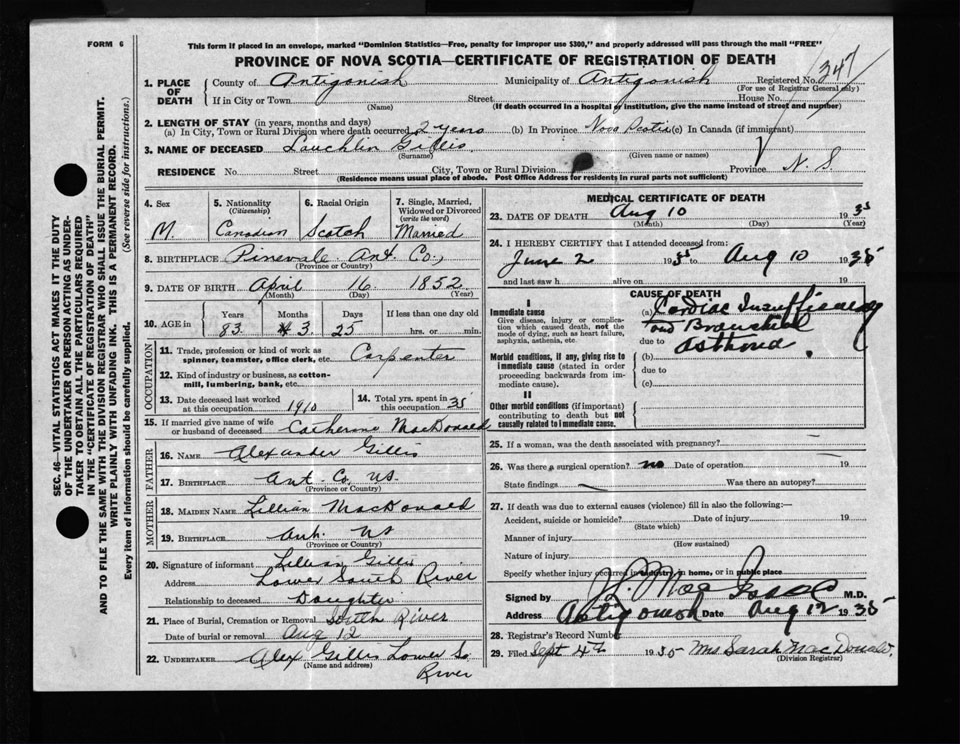 FORM 6
This form if placed in an envelope, marked "Dominion Statistics—Free, penalty for improper use $300," and properly addressed will pass through the mail "FREE"
PROVINCE OF NOVA SCOTIA—CERTIFICATE OF REGISTRATION OF DEATH
1. PLACE OF DEATH
County of Antigonish Municipality of Antigonish Registered No. 347
(For use of Registrar General only)
If in City or Town Street House No.
(Name) (If death occurred in a hospital or institution, give the name instead of street and number)
2. LENGTH OF STAY (in years, months and days)
(a) In City, Town or Rural Division where death occurred 2 years (b) In Province Nova Scotia (c) In Canada (if immigrant)
3. NAME OF DECEASED Lauchlin Gillis
(Surname) (Given name or names)
RESIDENCE No. Street City, Town or Rural Division Province N.S
(Residence means usual place of abode. Post Office Address for residents in rural parts not sufficient)
4. Sex M.
5. Nationality (Citizenship) Canadian
6. Racial Origin Scotch
7. Single, Married, Widowed or Divorced (write the word) Married
8. BIRTHPLACE Pinevale Ant. Co.,
(Province or Country)
9. DATE OF BIRTH April 16 1852
(Month) (Day) (Year)
10. AGE in Years Months Days If less than one day old
83 3 25 hrs. or min.
OCCUPATION
11. Trade, profession or kind of work as spinner, teamster, office clerk, etc. Carpenter
12. Kind of industry or business, as cotton-mill, lumbering, bank, etc.
13. Date deceased last worked at this occupation 1910
14. Total yrs. spent in this occupation 35
15. If married give name of wife or husband of deceased Catherine MacDonald
FATHER
16. NAME Alexander Gillis
17. BIRTHPLACE Ant. Co. NS.
(Province or Country)
MOTHER
18. MAIDEN NAME Lillian MacDonald
19. BIRTHPLACE Ant. NS
(Province or Country)
20. Signature of informant Lillian Gillis
Address Lower South River
Relationship to deceased Daughter
21. Place of Burial, Cremation or Removal South River
Date of burial or removal Aug 12
22. UNDERTAKER Alex Gillis Lower So. River
(Name and address)
MEDICAL CERTIFICATE OF DEATH
23. DATE OF DEATH Aug 10 1935
(Month) (Day) (Year)
24. I HEREBY CERTIFY that I attended deceased from:
June 2 1935 to Aug 10 1935
and last saw h alive on 19
CAUSE OF DEATH
I
Immediate cause
Give disease, injury or complication which caused death, not the mode of dying, such as heart failure, asphyxia, asthenia, etc.
(a) Cardiac Insufficiency
and Bronchial
due to Asthma
Morbid conditions, if any, giving rise to immediate cause (stated in order proceeding backwards from immediate cause).
(b)
due to
(c)
II
Other morbid conditions (if important) contributing to death but not causally related to immediate cause.
25. If a woman, was the death associated with pregnancy?
26. Was there a surgical operation? no Date of operation 19
State findings Was there an autopsy?
27. If death was due to external causes (violence) fill in also the following:—
Accident, suicide or homicide? Date of injury 19
(State which)
Manner of injury
(How sustained)
Nature of injury
Specify whether injury occurred in industry, in home, or in public place
Signed by H. MacIsaac M.D.
Address Antigonish Date Aug 12 1935
28. Registrar's Record Number
29. Filed Sept 4th 1935 Mrs Sarah MacDonald.
(Division Registrar)
SEC. 46—VITAL STATISTICS ACT MAKES IT THE DUTY
OF THE UNDERTAKER OR PERSON ACTING AS UNDER-
TAKER TO OBTAIN ALL THE PARTICULARS REQUIRED
IN THE "CERTIFICATE OF REGISTRATION OF DEATH"
AND TO FILE THE SAME WITH THE DIVISION REGISTRAR WHO SHALL ISSUE THE BURIAL PERMIT.
WRITE PLAINLY WITH UNFADING INK. THIS IS A PERMANENT RECORD.
Every item of information should be carefully supplied. (See reverse side for instructions.)